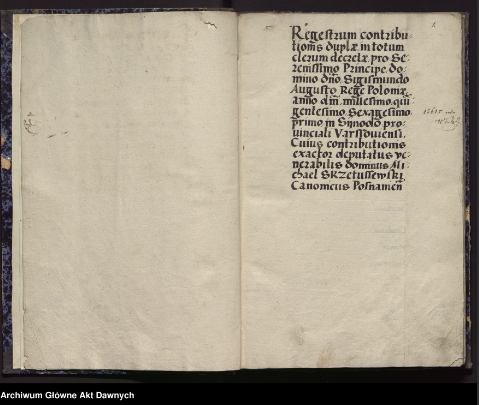 Regestrum contribu-
tionis duplæ in totum
clerum decretæ, pro Se-
renissimo Principe do-
mino dno Sigismundo
Augusto Rege Poloniæ
anno dni millesimo quin
gentesimo Sexagesimo
primo in Synodo pro-
uinciali Varssouiensi.
Cuius contributionis
exactor deputatus ve-
nerabilis dominus Mi-
chael Skrzetussewski
Canonicus Posnanien
Archiwum Główne Akt Dawnych